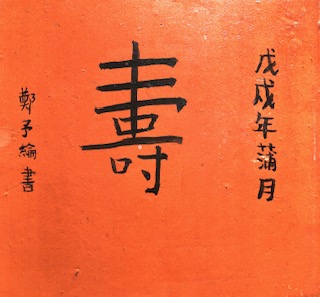 戊戌年蒲月
壽
鄭予綸書